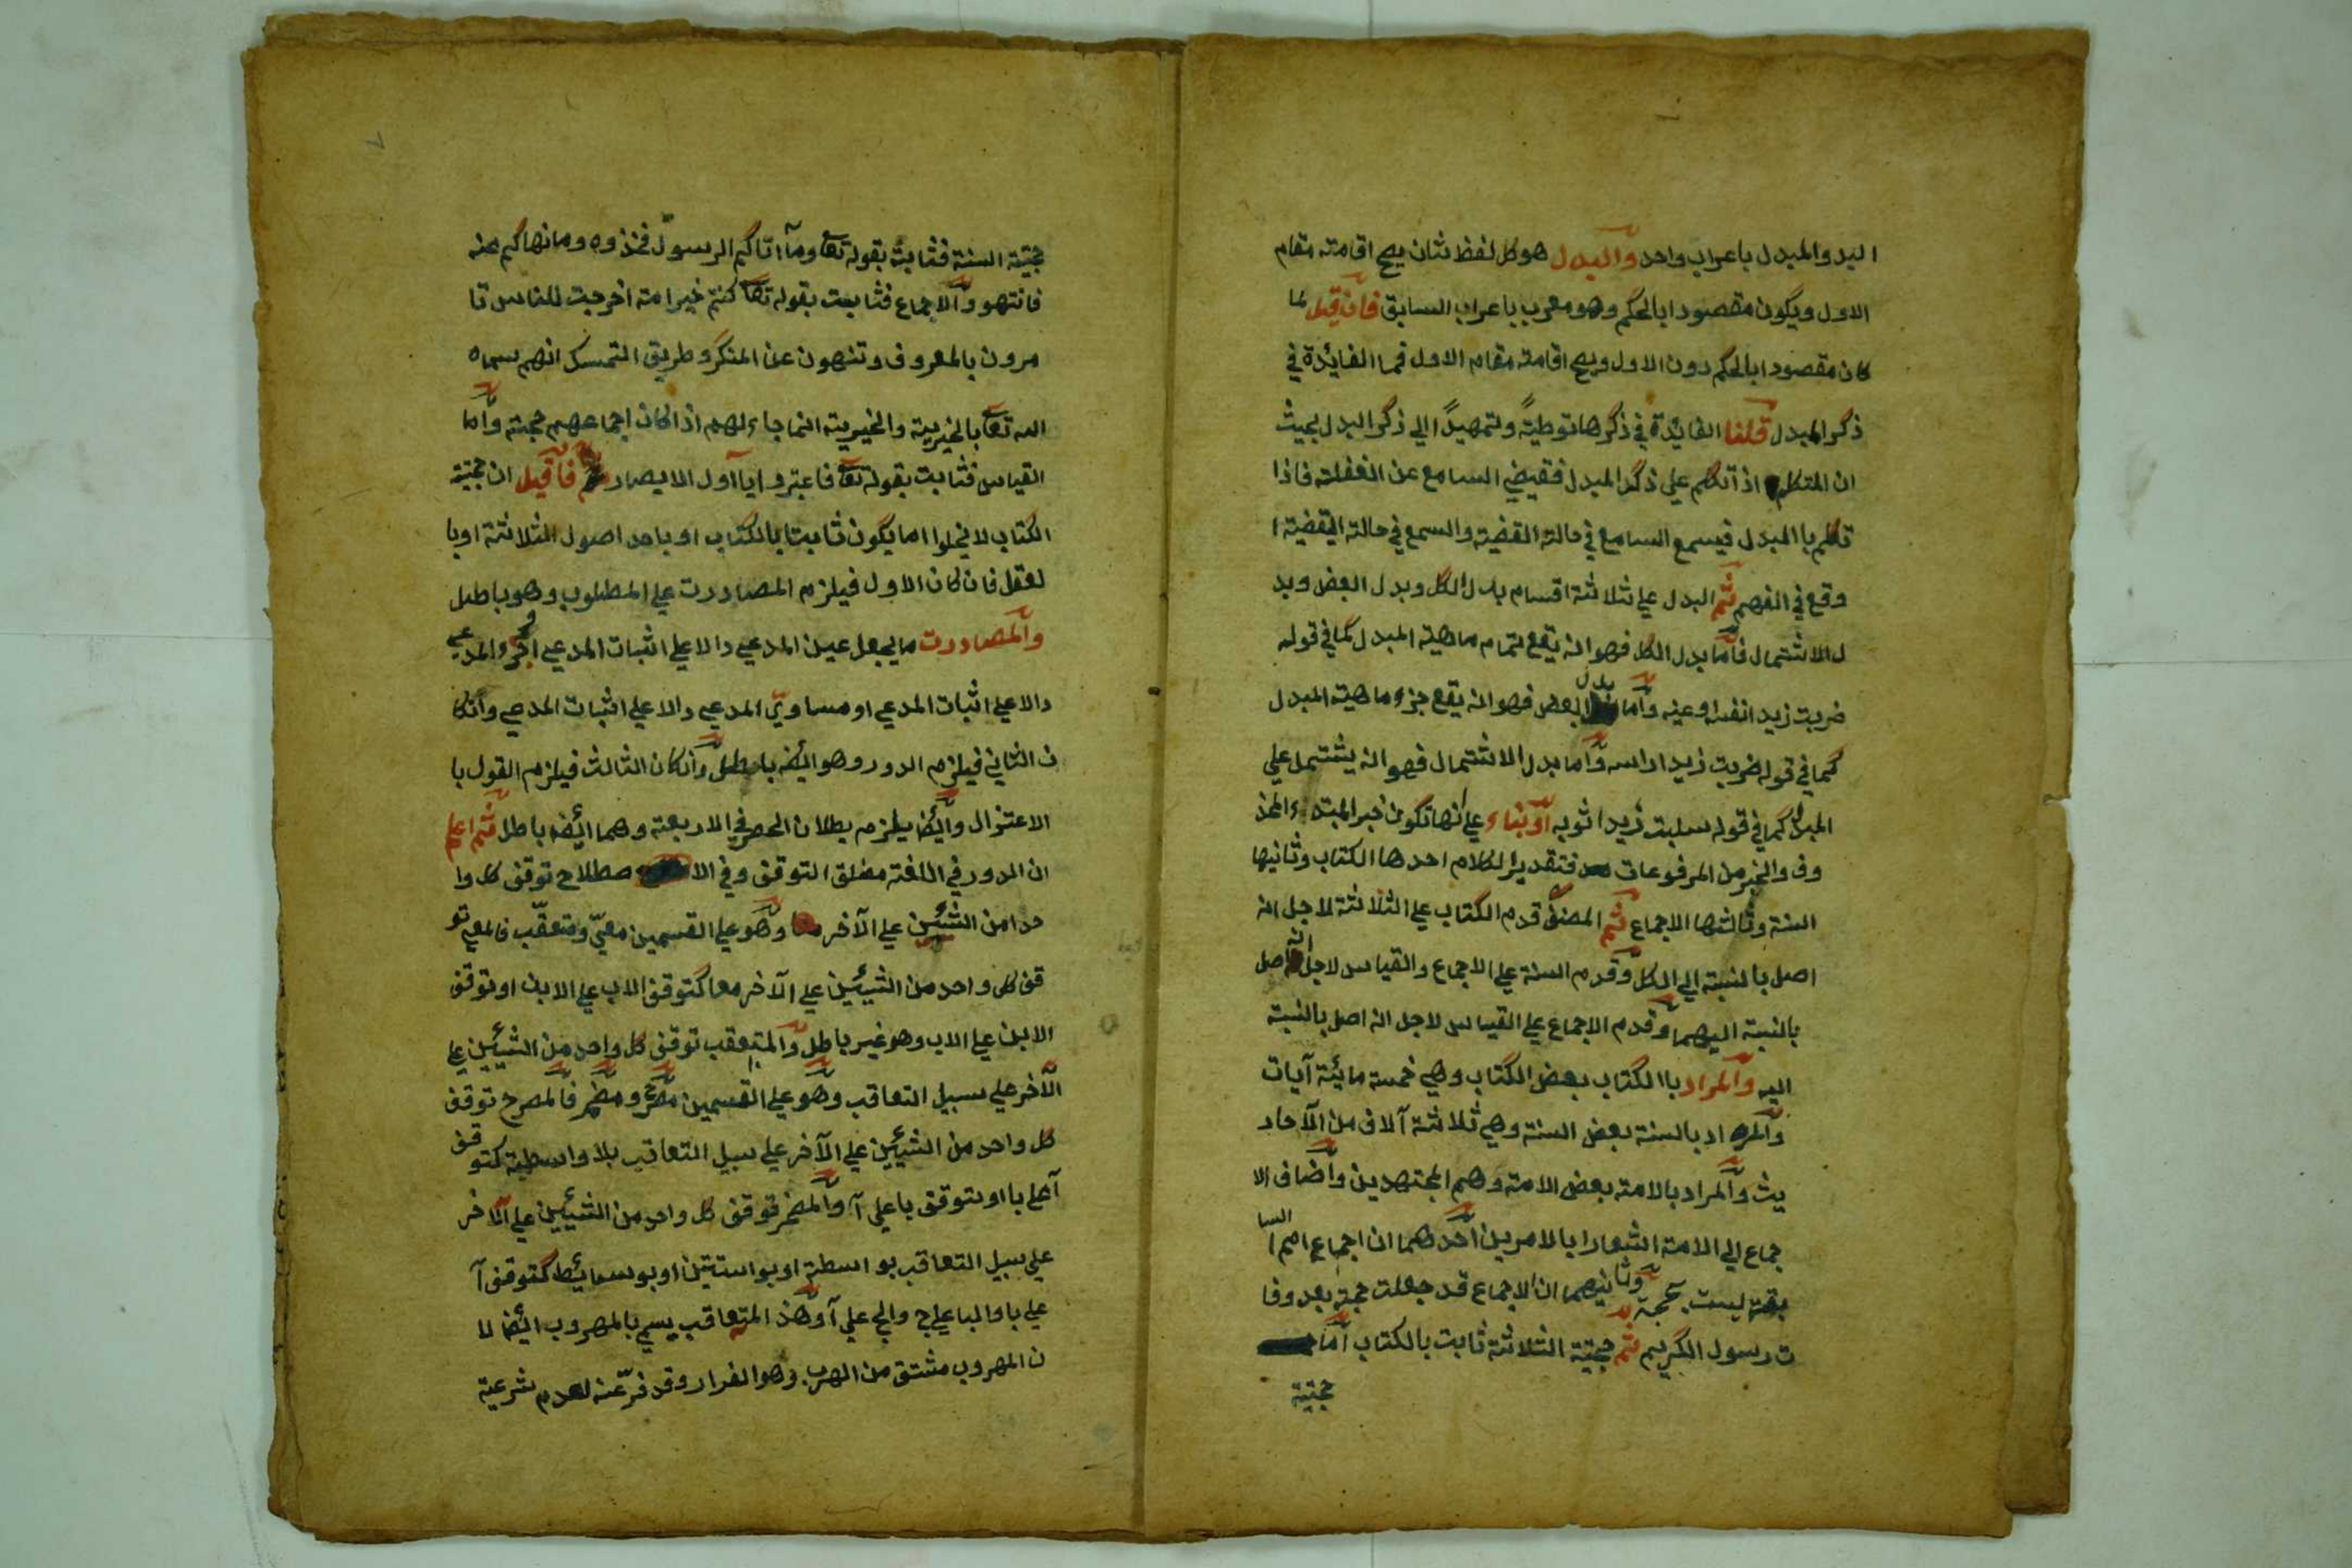 البد والمبدل باعراب واحد والبدل هو كل لفظ ثان يصح اقامته مقام
الاول ويكون مقصودا بالحكم وهو معرب باعراب السابق فان قيل لما
كان مقصودا بالحكم دون الاول ويصح اقامته مقام الاول فما الفائدة في
ذكر المبدل قلنا الفائدة في ذكرها توطيةً وتمهيدًا الي ذكر البدل بحيث
ان المتكلم اذ اتكلم علي ذكر المبدل فقيض السامع عن الغفلة فاذا
تكلم با المبدل فيسمع السامع في حالة القضية والسمع في حالة اليقضية ا
وقع في الفهم ثم البدل علي ثلاثة اقسام بدل الكل وبدل البعض وبد
ل الاشتمال فاما بدل الكل فهو انه يقع تمام ماهية المبدل كما في قوله
ضربت زيد انفسه وعينه واما بدل البعض فهو انه يقع جزء ماهية المبدل
كما في قوله ضربت زيد اراسه واما بدل الاشتمال فهو انه يشتمل علي
المبدل كما في قوله سلبت زيدا ثوبه او بناء علي انها تكون خبر المبتدء المحذ
وف والخبر من المرفوعات فتقدير الكلام احدها الكتاب وثانيها
السنة وثالثها الاجماع ثم المصنف قدم الكتاب علي الثلاثة لاجل انه
اصل بالنسبة الي الكل وقدم السنة علي الاجماع والقياس لاجل انه اصل
بالنسبة اليهما وقدم الاجماع علي القياس لاجل انه اصل بالنسبة
اليه والمراد با الكتاب بعض الكتاب وهي خمسة مايئة آيات
والمراد بالسنة بعض السنة وهي ثلاثة آلاف من الآحاد
يث والمراد بالامة بعض الامة وهم المجتهدين واضاف الا
جماع الي الامة اشعارا بالامرين احدهما ان اجماع امم السا
بقة ليست بحجة وثانيهما ان الاجماع قد جعلت حجة بعد وفا
ت رسول الكريم ثم حجية الثلاثة ثابت بالكتاب اما
حجية
حجية السنة فثابت بقوله تعا وما اتاكم الرسول فخذوه وما نهاكم عنه
فانتهو والاجماع فثابت بقوله تعا كنتم خير امة اخرجت للناس تا
مرون بالمعروف وتنهون عن المنكر وطريق التمسك انهم سماه
الله تعا بالخيرية والخيرية انما جاء لهم اذا كان اجماعهم حجة واما
القياس فثابت بقوله تعا فاعتبروا يا اول الابصار فا قيل ان حجية
الكتاب لا يخلوا اما يكون ثابتا بالكتاب او باحد اصول الثلاثة او با
لعقل فان كان الاول فيلزم المصادرت علي المطلوب وهو باطل
والمصادرت ما يجعل عين المدعي دالا علي اثبات المدعي او جزء المدعي
دالا علي اثبات المدعي او مساوي المدعي دالا علي اثبات المدعي وانكا
ن الثاني فيلزم الدور وهو ايضا باطل وانكان الثالث فيلزم القول با
الاعتزال وايضا يلزم بطلان الحصر في الاربعة وهما ايضا باطل ثم اعلم
ان الدور في اللغة مطلق التوقف وفي الا صطلاح توقف كل وا
حدا من الشيئين علي الآخر وهو علي القسمين معيّ ومتعقّب فالمعي تو
قف كل واحد من الشيئين علي الآخر معا كتوقف الاب علي الابن او توقف
الابن علي الاب وهو غير باطل والمتعقب توقف كل واحد من الشيئين علي
الآخر علي سبيل التعاقب وهو علي القسمين مصرح ومضمر فالمصرح توقف
كل واحد من الشيئين علي الآخر علي سبيل التعاقب بلا واسطة كتوقف
آ علي با او بتوقف با علي آ والمضمر توقف كل واحد من الشيئين علي الآخر
علي سبيل التعاقب بواسطة او بواستتين او بوسائط كتوقف آ
علي با والبا علي ج والج علي آ وهذ المتعاقب يسمي بالمهروب ايضا لا
ن المهروب مشتق من الهرب وهو الفرار وقد فرّ عنه لعدم شرعية